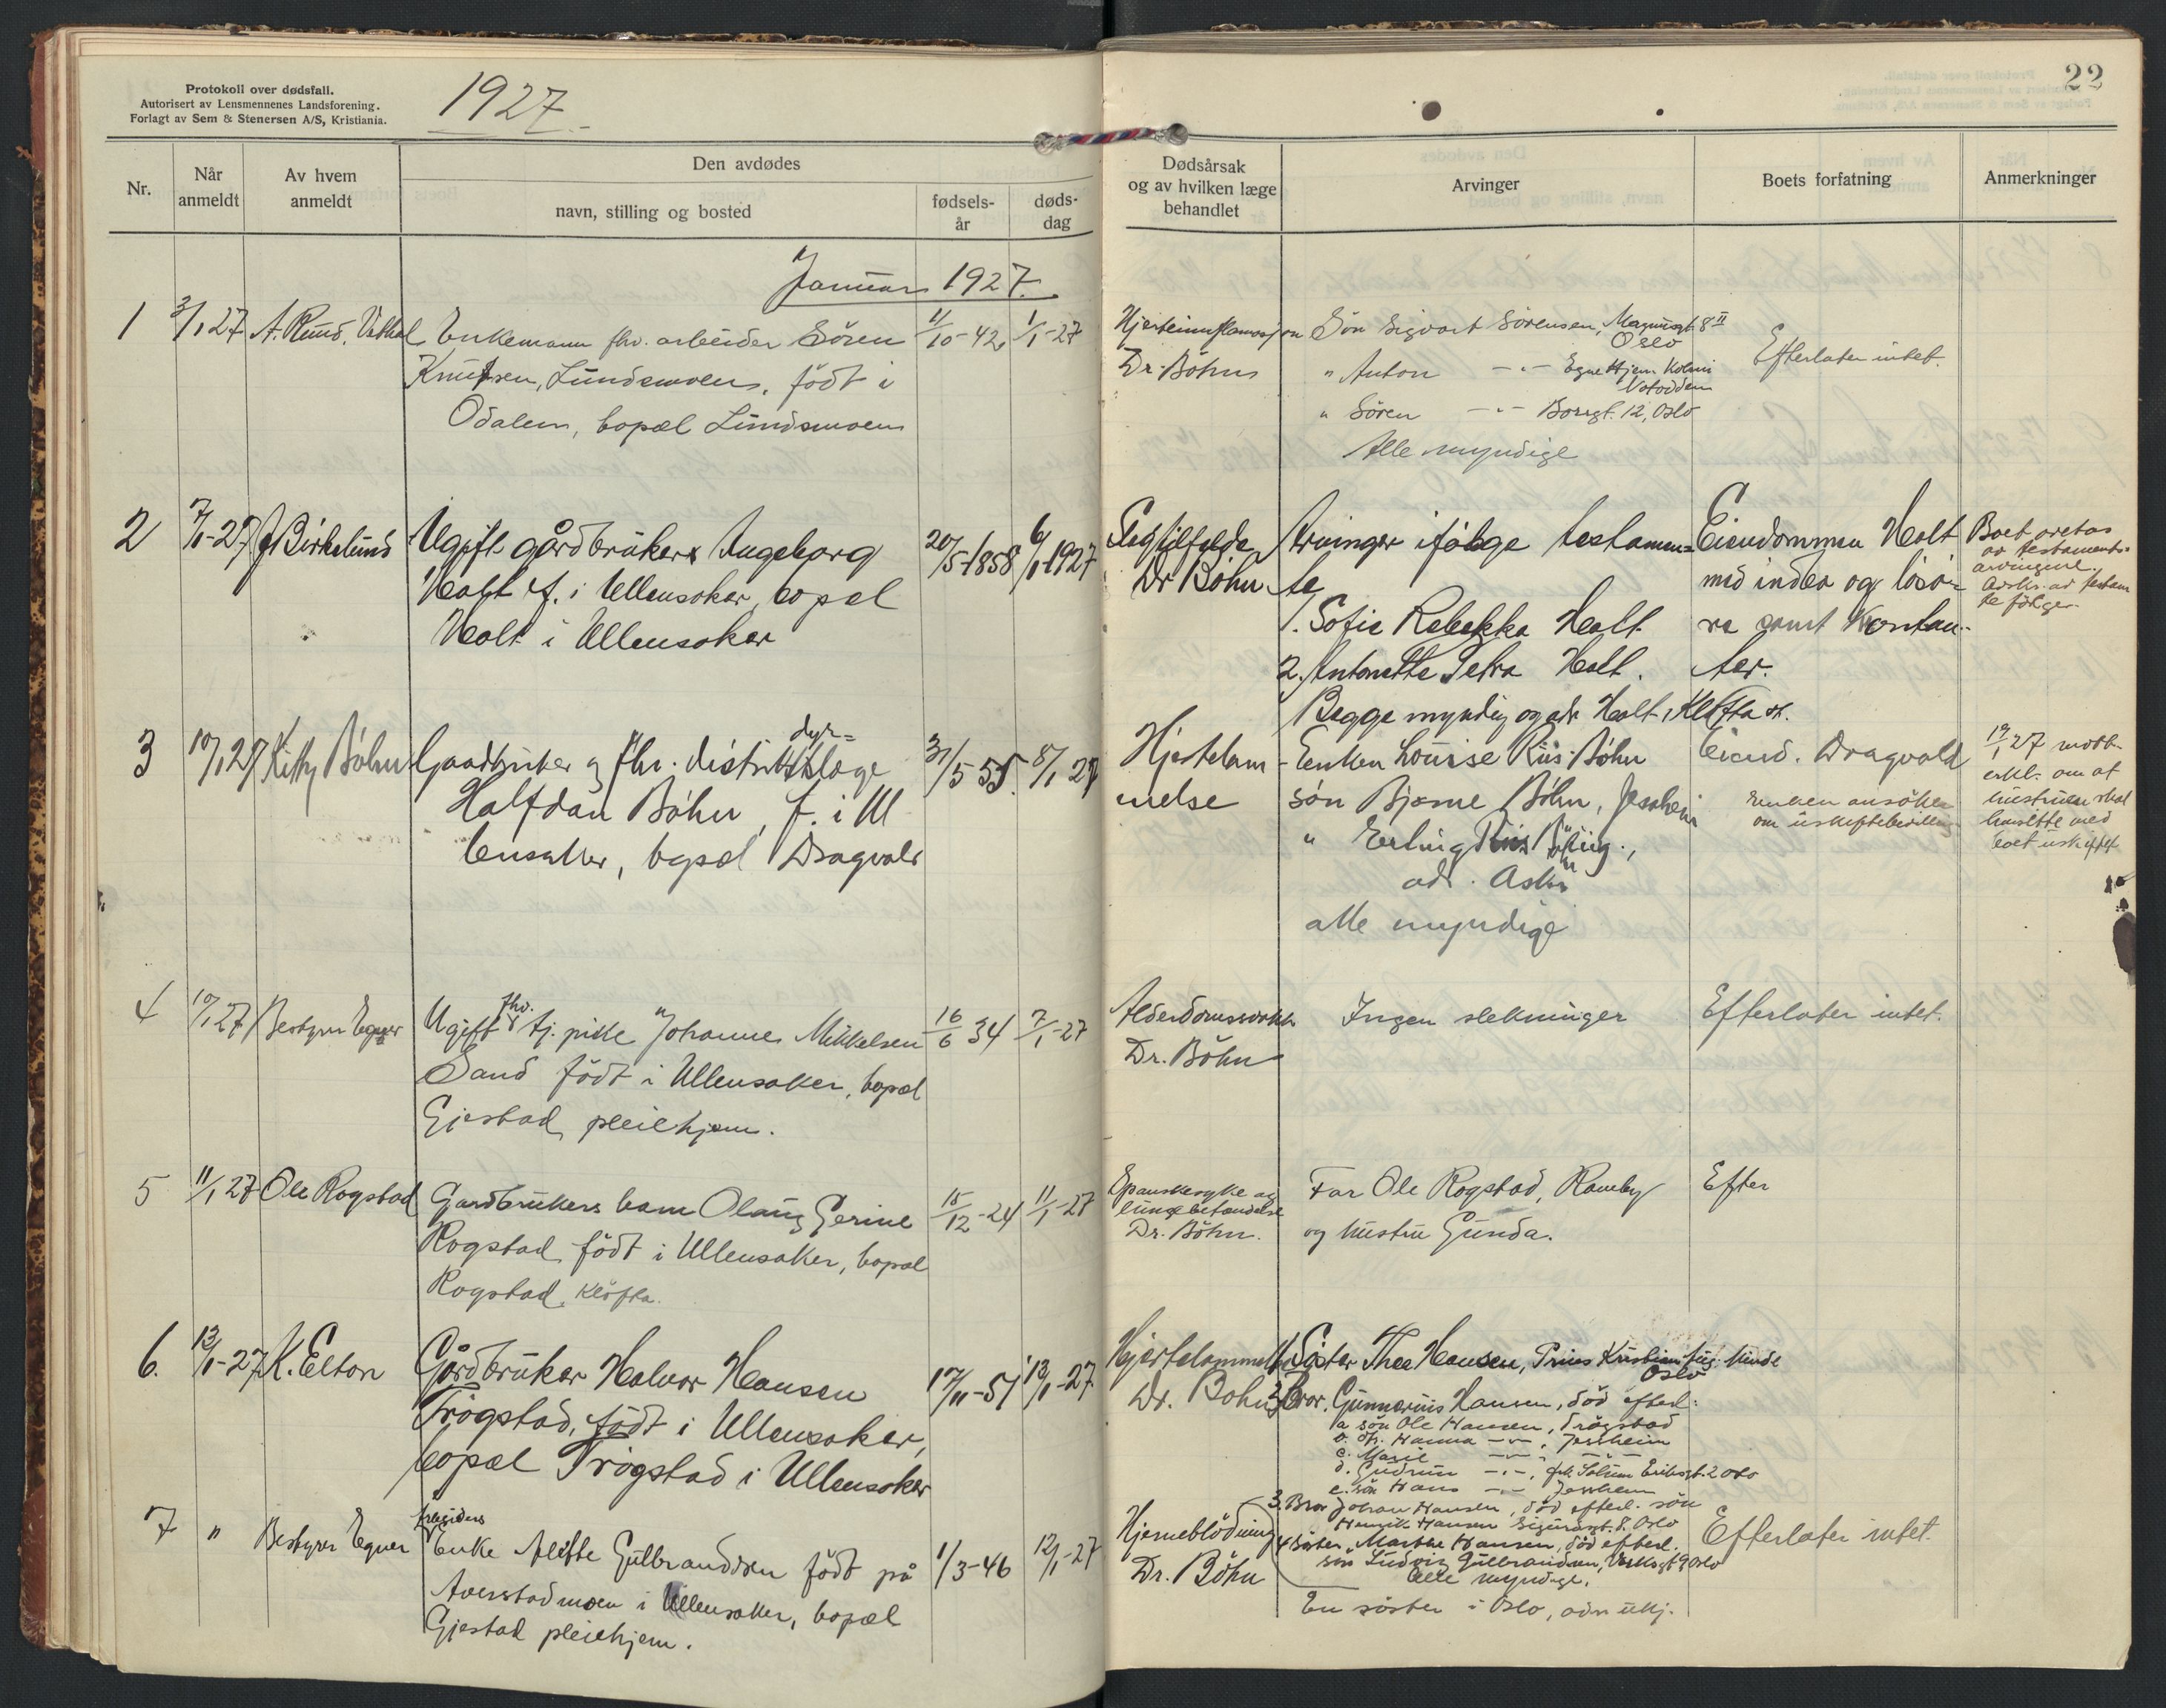 Protokoll over dødsfall.
Autorisert av Lensmennenes Landsforening.
Forlagt av Sem & Stenersen A/S, Kristiania.
1927
22
Nr.
Når anmeldt
Av hvem anmeldt
Den avdødes
navn, stilling og bosted
fødsels-år
døds-dag
Dødsårsak og av hvilken læge behandlet
Arvinger
Boets forfatning
Anmerkninger
Januar 1927.
1 3/1 27 A. Ruud, Vethal
Enkemann fhv. arbeider Sören
Knutsen, Lundsmoen, födt i
Odalen, bopæl Lundsmoen
11/10-42 1/1-27
Hjerteinflamasjon
Dr. Böhn
Sön Sigvart Sörensen, Magnusgt. 8 II
Oslo
" Anton -"- Egne Hjem Koloni
Notodden
" Sören -"- Borggt. 12, Oslo
Alle myndige
Efterlater intet.
2 7/1-27 J Birkelund
Ugift gårdbruker Ingeborg
Holt f. i Ullensaker, bopæl
Holt i Ullensaker
20/5-1858 6/1-1927
Slagtilfelde
Dr Böhn
Arvinger ifölge testamen=
te
1. Sofie Rebekka Holt
2. Antonette Petra Holt.
Begge myndig og adr Holt, Kløfta st.
Eiendommen Holt
med indbo og lösö-
re samt kontan-
ter.
Boet overtas
av testaments-
arvingene.
Avskr. av testam
te følger.
3 10/1 27 Kitty Böhn
Gaardbruker og fhv. distriktsdyr=
læge
Halfdan Böhn, f. i Ul
lensaker, bopæl Dragvold
31/5 55. 8/1 27
Hjertelam
melse
Enken Louise Riis Böhn
sön Bjarne Böhn, Jessheim
" Erling Riis Böhn,
adr. Ask
alle myndige
Eiend. Dragvold
Enken ansöker
om uskiftebevilling
19/1 27 mott.
erkl. om at
hustruen skal
hensitte med
boet uskiftet
4 10/1 27 Bestyrer Egner
Ugift fhv. tj. pike Johanne Mikkelsen
Sand födt i Ullensaker, bopæl
Gjestad pleiehjem.
16/6 34 7/1-27
Alderdomssvakh
Dr. Böhn
Ingen slektninger
Efterlater intet.
5 11/1 27 Ole Rogstad
Gardbrukers barn Olaug Gerine
Rogstad födt i Ullensaker, bopæl
Rogstad, Klöfta.
15/12-24 11/1-27
Spanskesyke og
lungebetændelse
Dr. Böhn.
Far Ole Rogstad, Romby
og hustru Gunda.
Efter
6. 13/1-27 K. Elton
Gårdbruker Halvor Hansen
Trögstad, födt i Ullensaker,
bopæl Trögstad i Ullensaker
17/11-51 12/1-27
Hjertelammelse
Dr. Bohn
1. Sister Thea Hansen, Prins Kristian Aug. Minde
Oslo
2. Bror, Gunnerius Hansen, död efterl:
a sön Ole Hansen, Trögstad
b. dtr. Hanna -"-, Jessheim
c. Marie -"-
d. Gudrun -"-, frk. Solum Eriksgt. 2 Oslo
e. sön Hans -"- Jessheim
3. Bror Johan Hansen, död efterl. sön
Henrik Hansen Sigurdsgt. 8. Oslo
4 söster Marthe Hansen, död efterl.
sön Ludvig Gulbrandsen, Verksgt 9 Oslo
Alle myndige.
7 " Bestyrer Egner
Arbeiders
Enke Alette Gulbrandsen födt på
Averstadmoen i Ullensaker, bopæl
Gjestad pleiehjem.
1/3-46 12/1-27
Hjerneblödning
Dr. Böhn
En söster i Oslo, adr. ukj.
Efterlater intet.